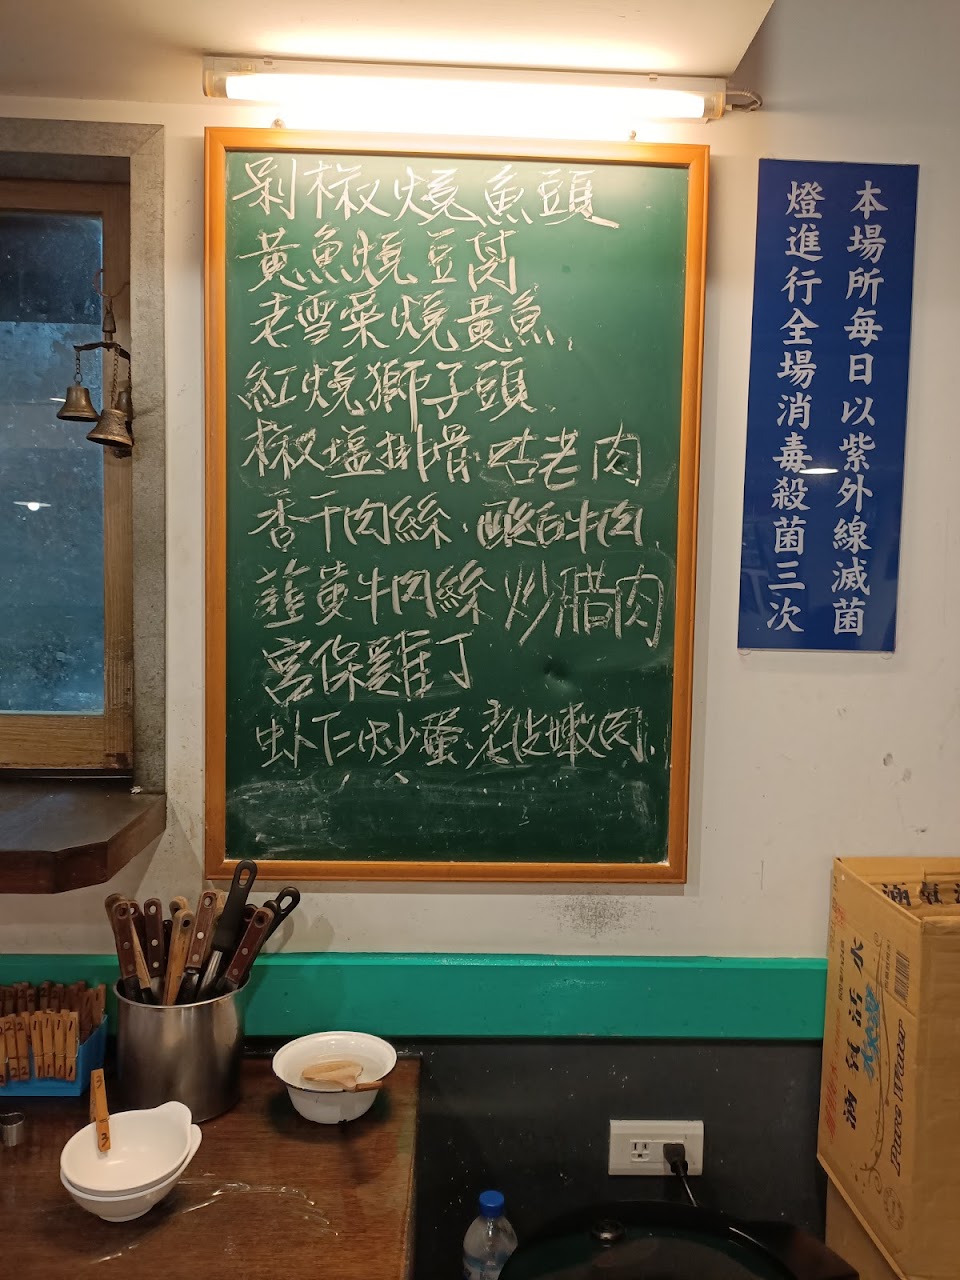 剁椒燒魚頭
黃魚燒豆腐
老雪菜燒黃魚.
紅燒獅子頭
椒塩排骨.咕老肉
香干肉絲.酸白牛肉.
韮黃牛肉絲 炒腊肉
宮保雞丁
虾仁炒蛋.老皮嫩肉.
本場所每日以紫外線滅菌
燈進行全場消毒殺菌三次
Pure Water
3
3